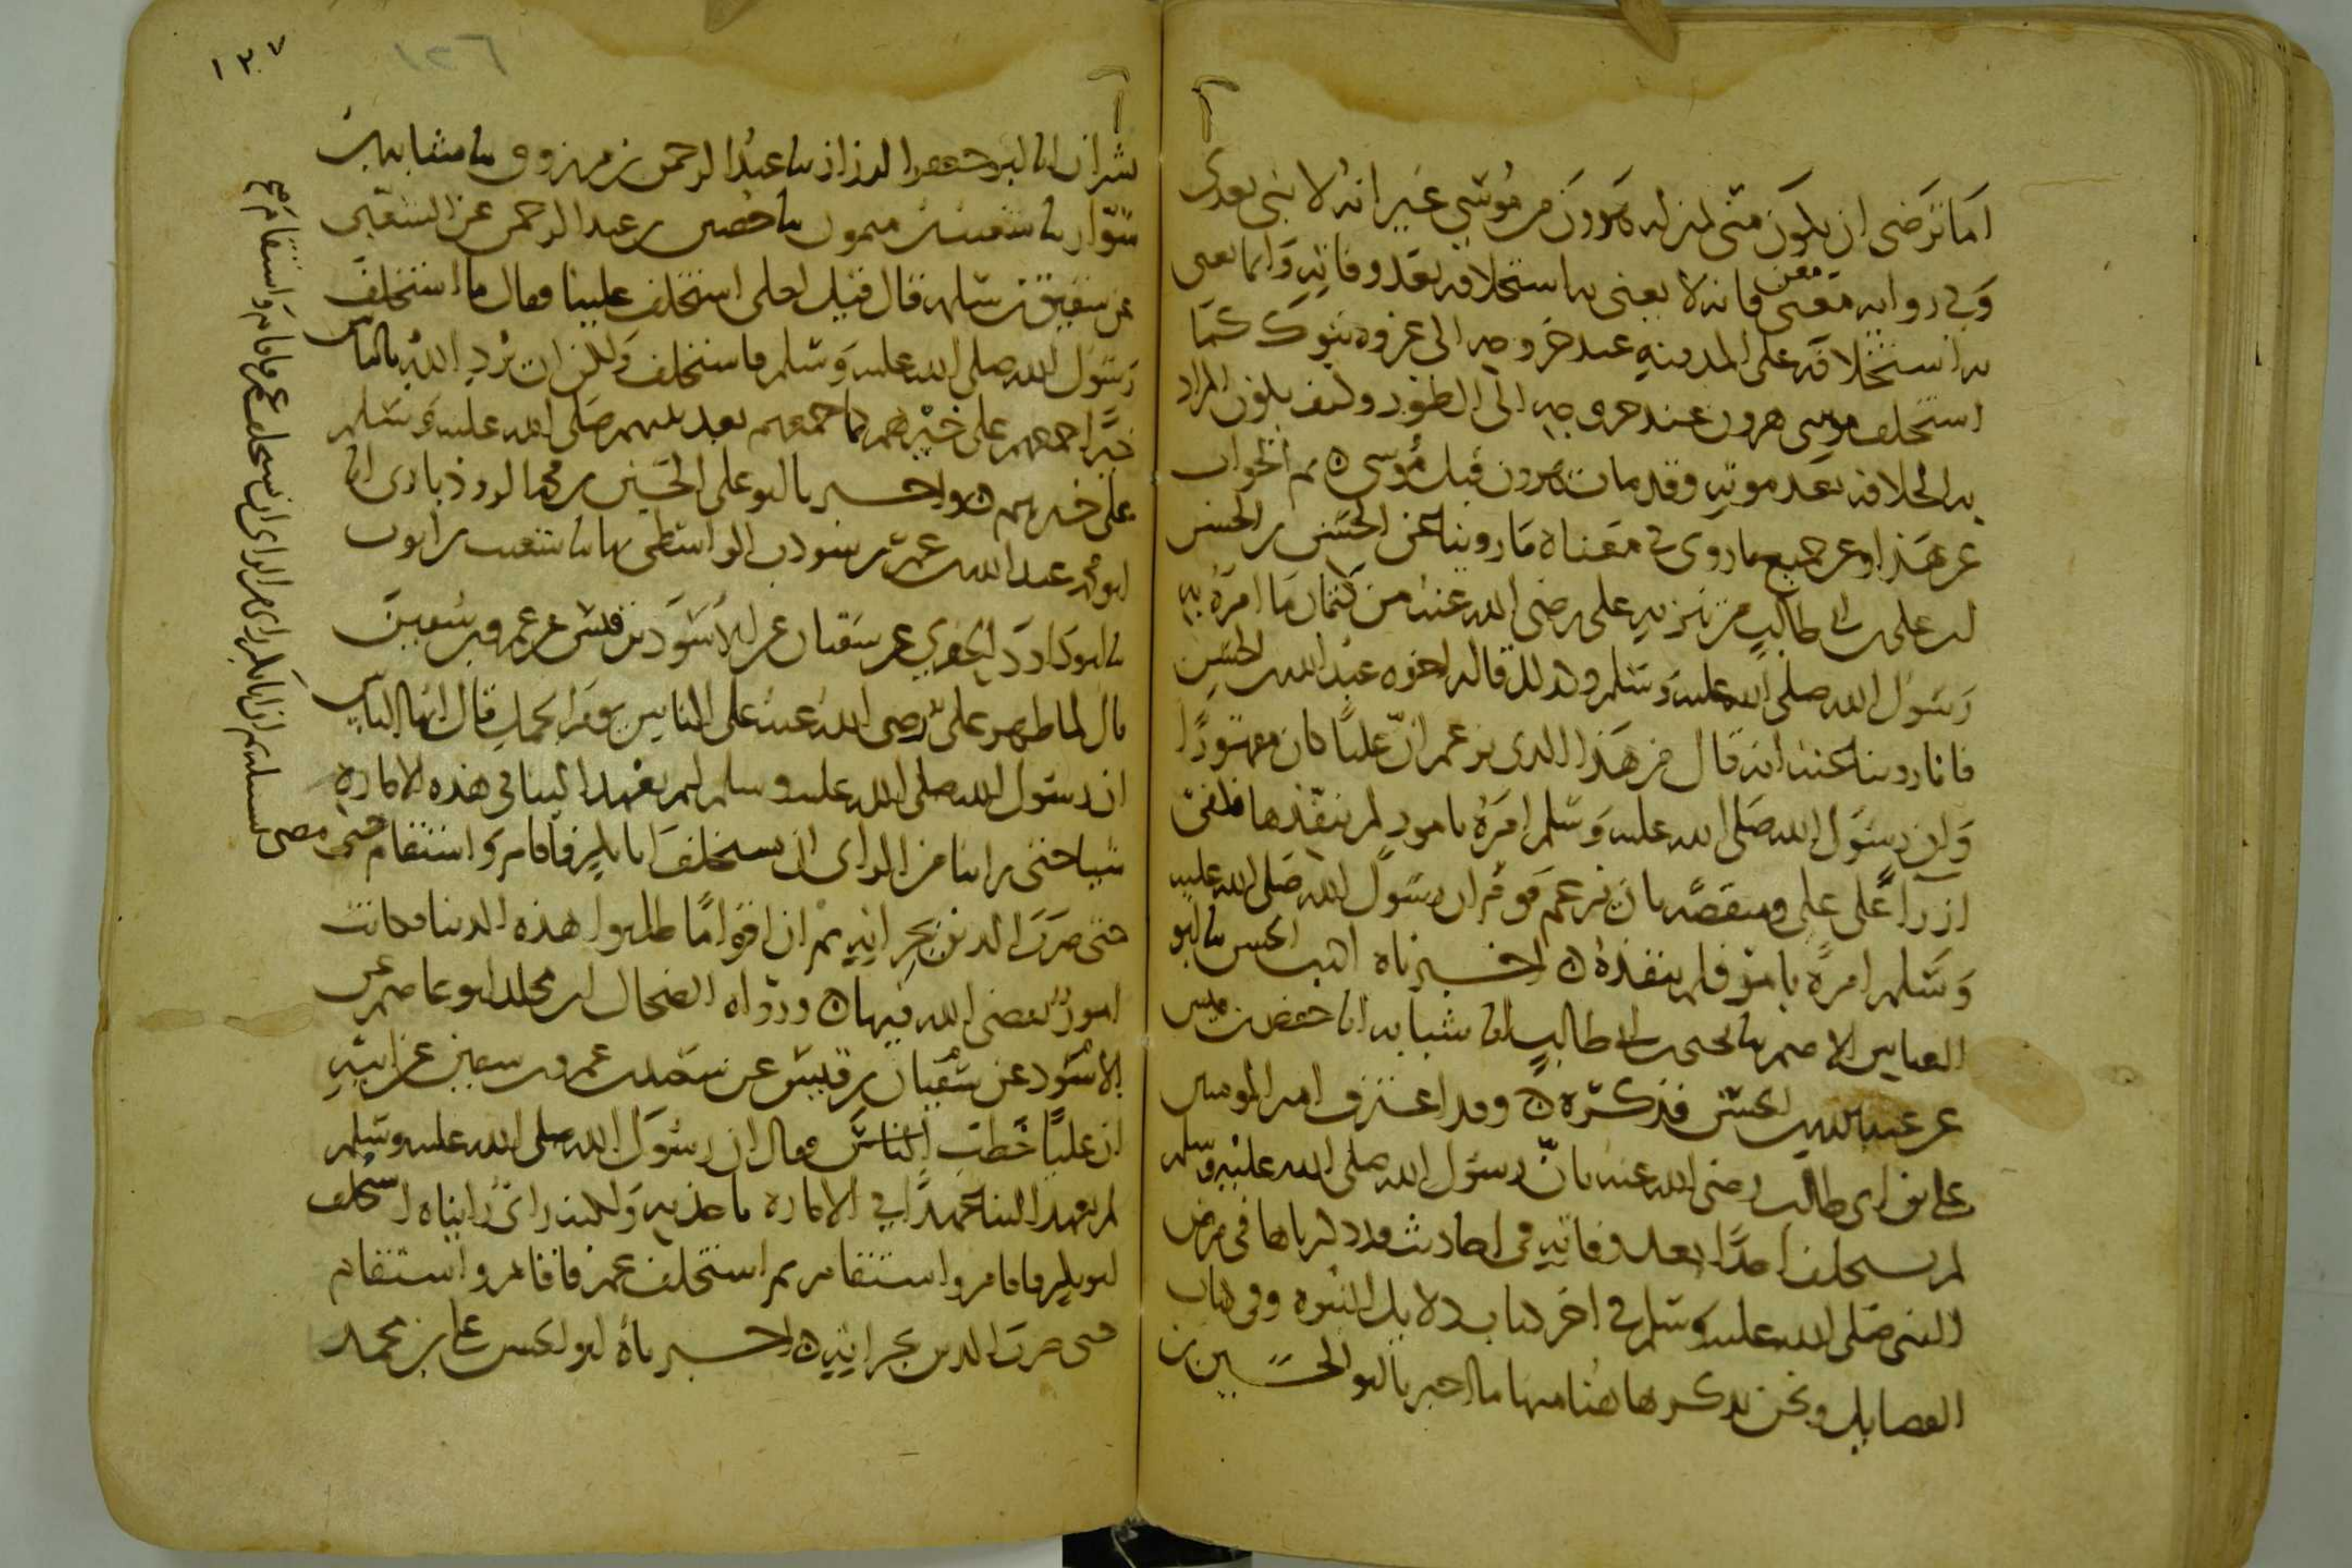 اما ترضى ان تكون منى بمنزلة هرون من موسى غير انه لا نبى بعدى
وفى رواية معن فانه لا يعنى به استخلافه بعد وفاته وانما يعنى
به استخلافه على المدينة عند خروجه الى غزوة تبوك كما
استخلف موسى هرون عند خروجه الى الطور وكيف يكون المراد
به الخلافة بعد موته وقد مات هرون قبل موسى ثم الجواب
عن هذا وعن جميع ما روى فى معناه ما روينا عن الحسن بن الحسن
ابن على بن ابى طالب من تنزيه على رضى الله عنه من كتمان ما امره به
رسول الله صلى الله عليه وسلم وكذلك قاله اخوه عبد الله بن الحسن
فانا روينا عنه انه قال من هذا الذى يزعم ان عليا كان مقهورا
وان رسول الله صلى الله عليه وسلم امره بامور لم ينفذها فكفى
ازراءً على على ومنقصة بان يزعم قوم ان رسول الله صلى الله عليه
وسلم امره بامر فلم ينفذه اخبرناه ابن الحسن نا ابو
العباس الاصم نا يحيى بن ابى طالب انا شبابه انا حفص بن قيس
عن عبد الله بن الحسن فذكره وقد اعترف امير المومنين
على بن ابى طالب رضى الله عنه بان رسول الله صلى الله عليه وسلم
لم يستخلف احدا بعد وفاته فى احاديث قد ذكرناها فى مرض
النبى صلى الله عليه وسلم فى اخر كتاب دلايل النبوة وفى كتاب
الفضايل ونحن نذكرها هنا منها ما اخبرنا ابو الحسين بن
١٣٧
١٣٦
بشران انا ابو جعفر الرزاز نا عبد الرحمن بن مرزوق نا شبابة بن
سوار نا شعيب بن ميمون نا حصين بن عبد الرحمن عن الشعبى
عن شقيق بن سلمه قال قيل لعلى استخلف علينا فقال ما استخلف
رسول الله صلى الله عليه وسلم فاستخلف ولكن ان يرد الله بالناس
خيرا جمعهم على خيرهم كما جمعهم بعد نبيهم صلى الله عليه وسلم
على خيرهم واخبرنا ابو على الحسين بن محمد الروذبارى انا
ابو محمد عبد الله بن عمر بن شوذب الواسطى بها نا شعيب بن ايوب
نا ابو داود الحفرى عن سفيان عن الاسود بن قيس عن عمرو بن سفين
قال لما ظهر على رضى الله عنه على الناس يوم الجمل قال ايها الناس
ان رسول الله صلى الله عليه وسلم لم يعهد الينا فى هذه الامارة
شيا حتى راينا من الراى ان نستخلف ابا بكر فاقام واستقام حتى مضى
لسبيله ثم ان ابا بكر راى من الراى ان يستخلف عمر فاقام واستقام صح
حتى ضرب الدين بجرانه ثم ان اقواما طلبوا هذه الدنيا فكانت
امور يقضى الله فيها ورواه الضحاك بن مخلد ابو عاصم عن
الاسود عن سفيان بن قيس عن سعيد بن عمرو بن سفين عن ابيه
ان عليا خطب الناس فقال ان رسول الله صلى الله عليه وسلم
لم يعهد الينا عهدا فى الامارة ناخذ به ولكنه راى رايناه استخلف
ابو بكر فاقام واستقام ثم استخلف عمر فاقام واستقام
حتى ضرب الدين بجرانه اخبرناه ابو الحسن على بن محمد